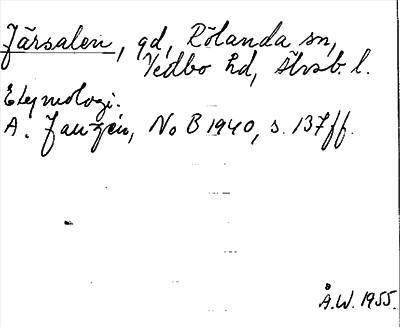 Järsalen, gd, Rölanda sn,
Vedbo hd, Älvsb. l.
Etymologi.
A. Janzén, No B 1940, s. 137ff.
Å.W. 1955.